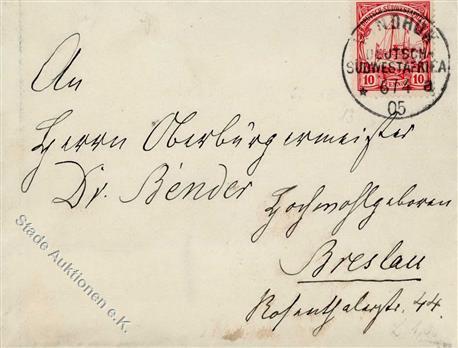 DEUTSCH-SÜDWESTAFRIKA
10 10
DEUTSCH-
SÜDWESTAFRIKA
* 6 7 4 a
05
An
Herrn Oberbürgermeister
Dr. Bender
Hochwohlgeboren
Breslau
Rosenthalerstr. 44.
Stade Auktionen e.K.